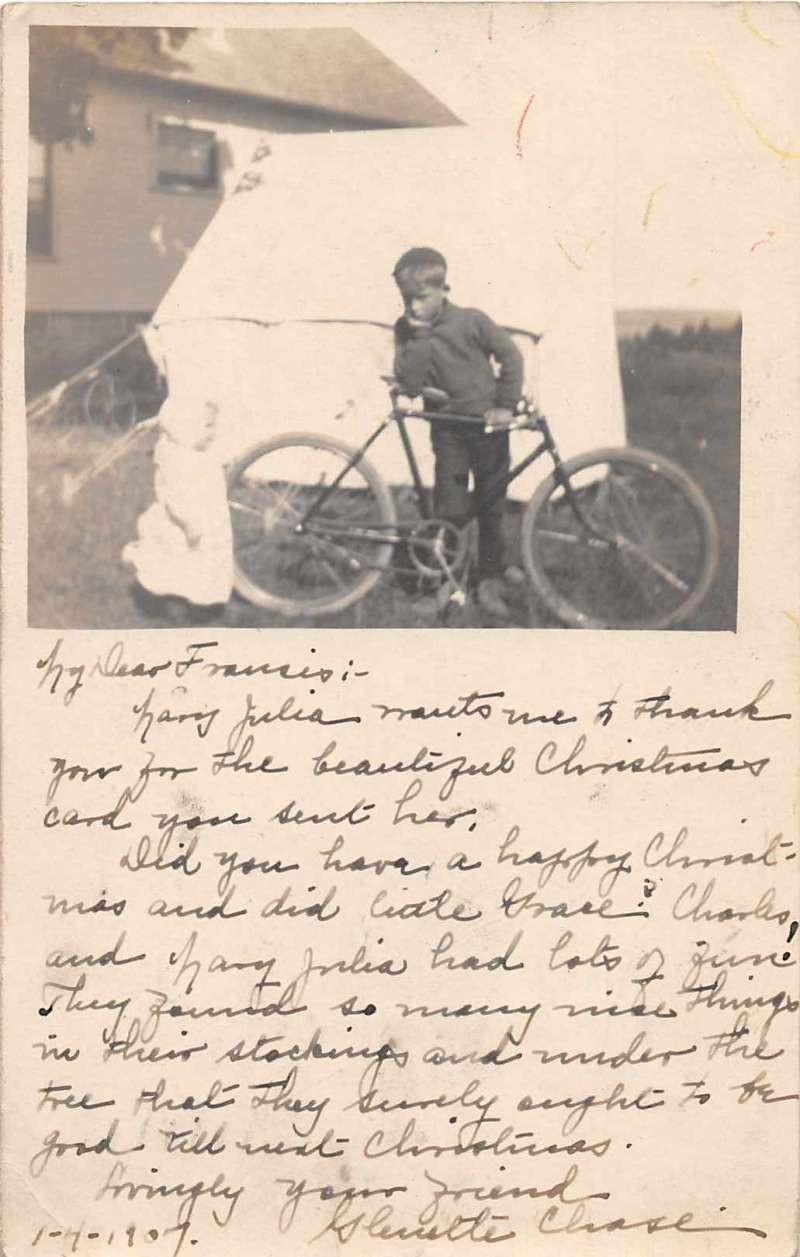 My Dear Francis:-
Mary Julia wants me to thank
you for the beautiful Christmas
card you sent her.
Did you have a happy Christ-
mas and did little Grace? Charles,
and Mary Julia had lots of fun!
They found so many nice things
in their stockings and under the
tree that they surely ought to be
good till next Christmas.
Lovingly your friend
Glenette Chase
1-4-1909.